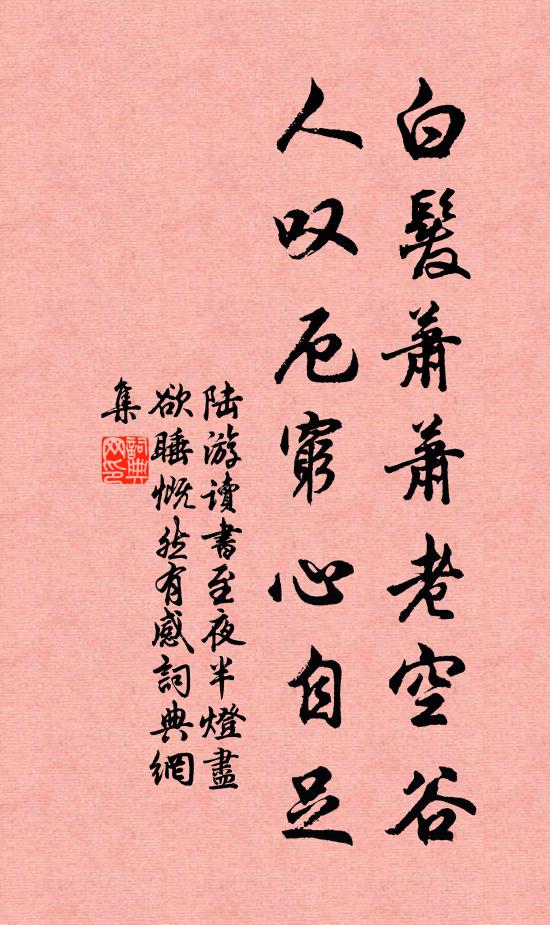 白髮蕭蕭老空谷
人叹厄窮心自足
陆游讀書至夜半燈盡
欲睡慨然有感詞典網
集
詞典
网印